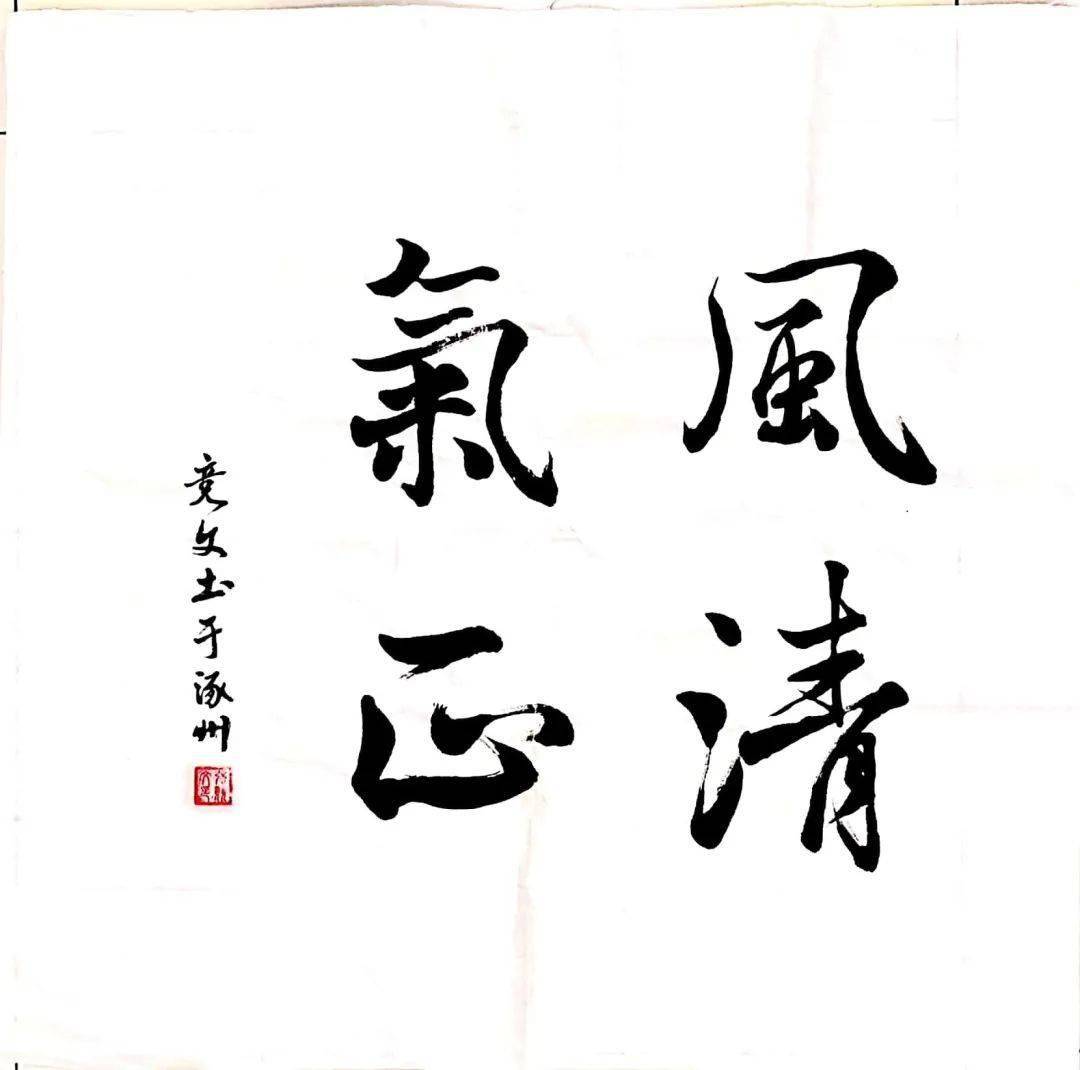 風清
氣正
竞文书于涿州